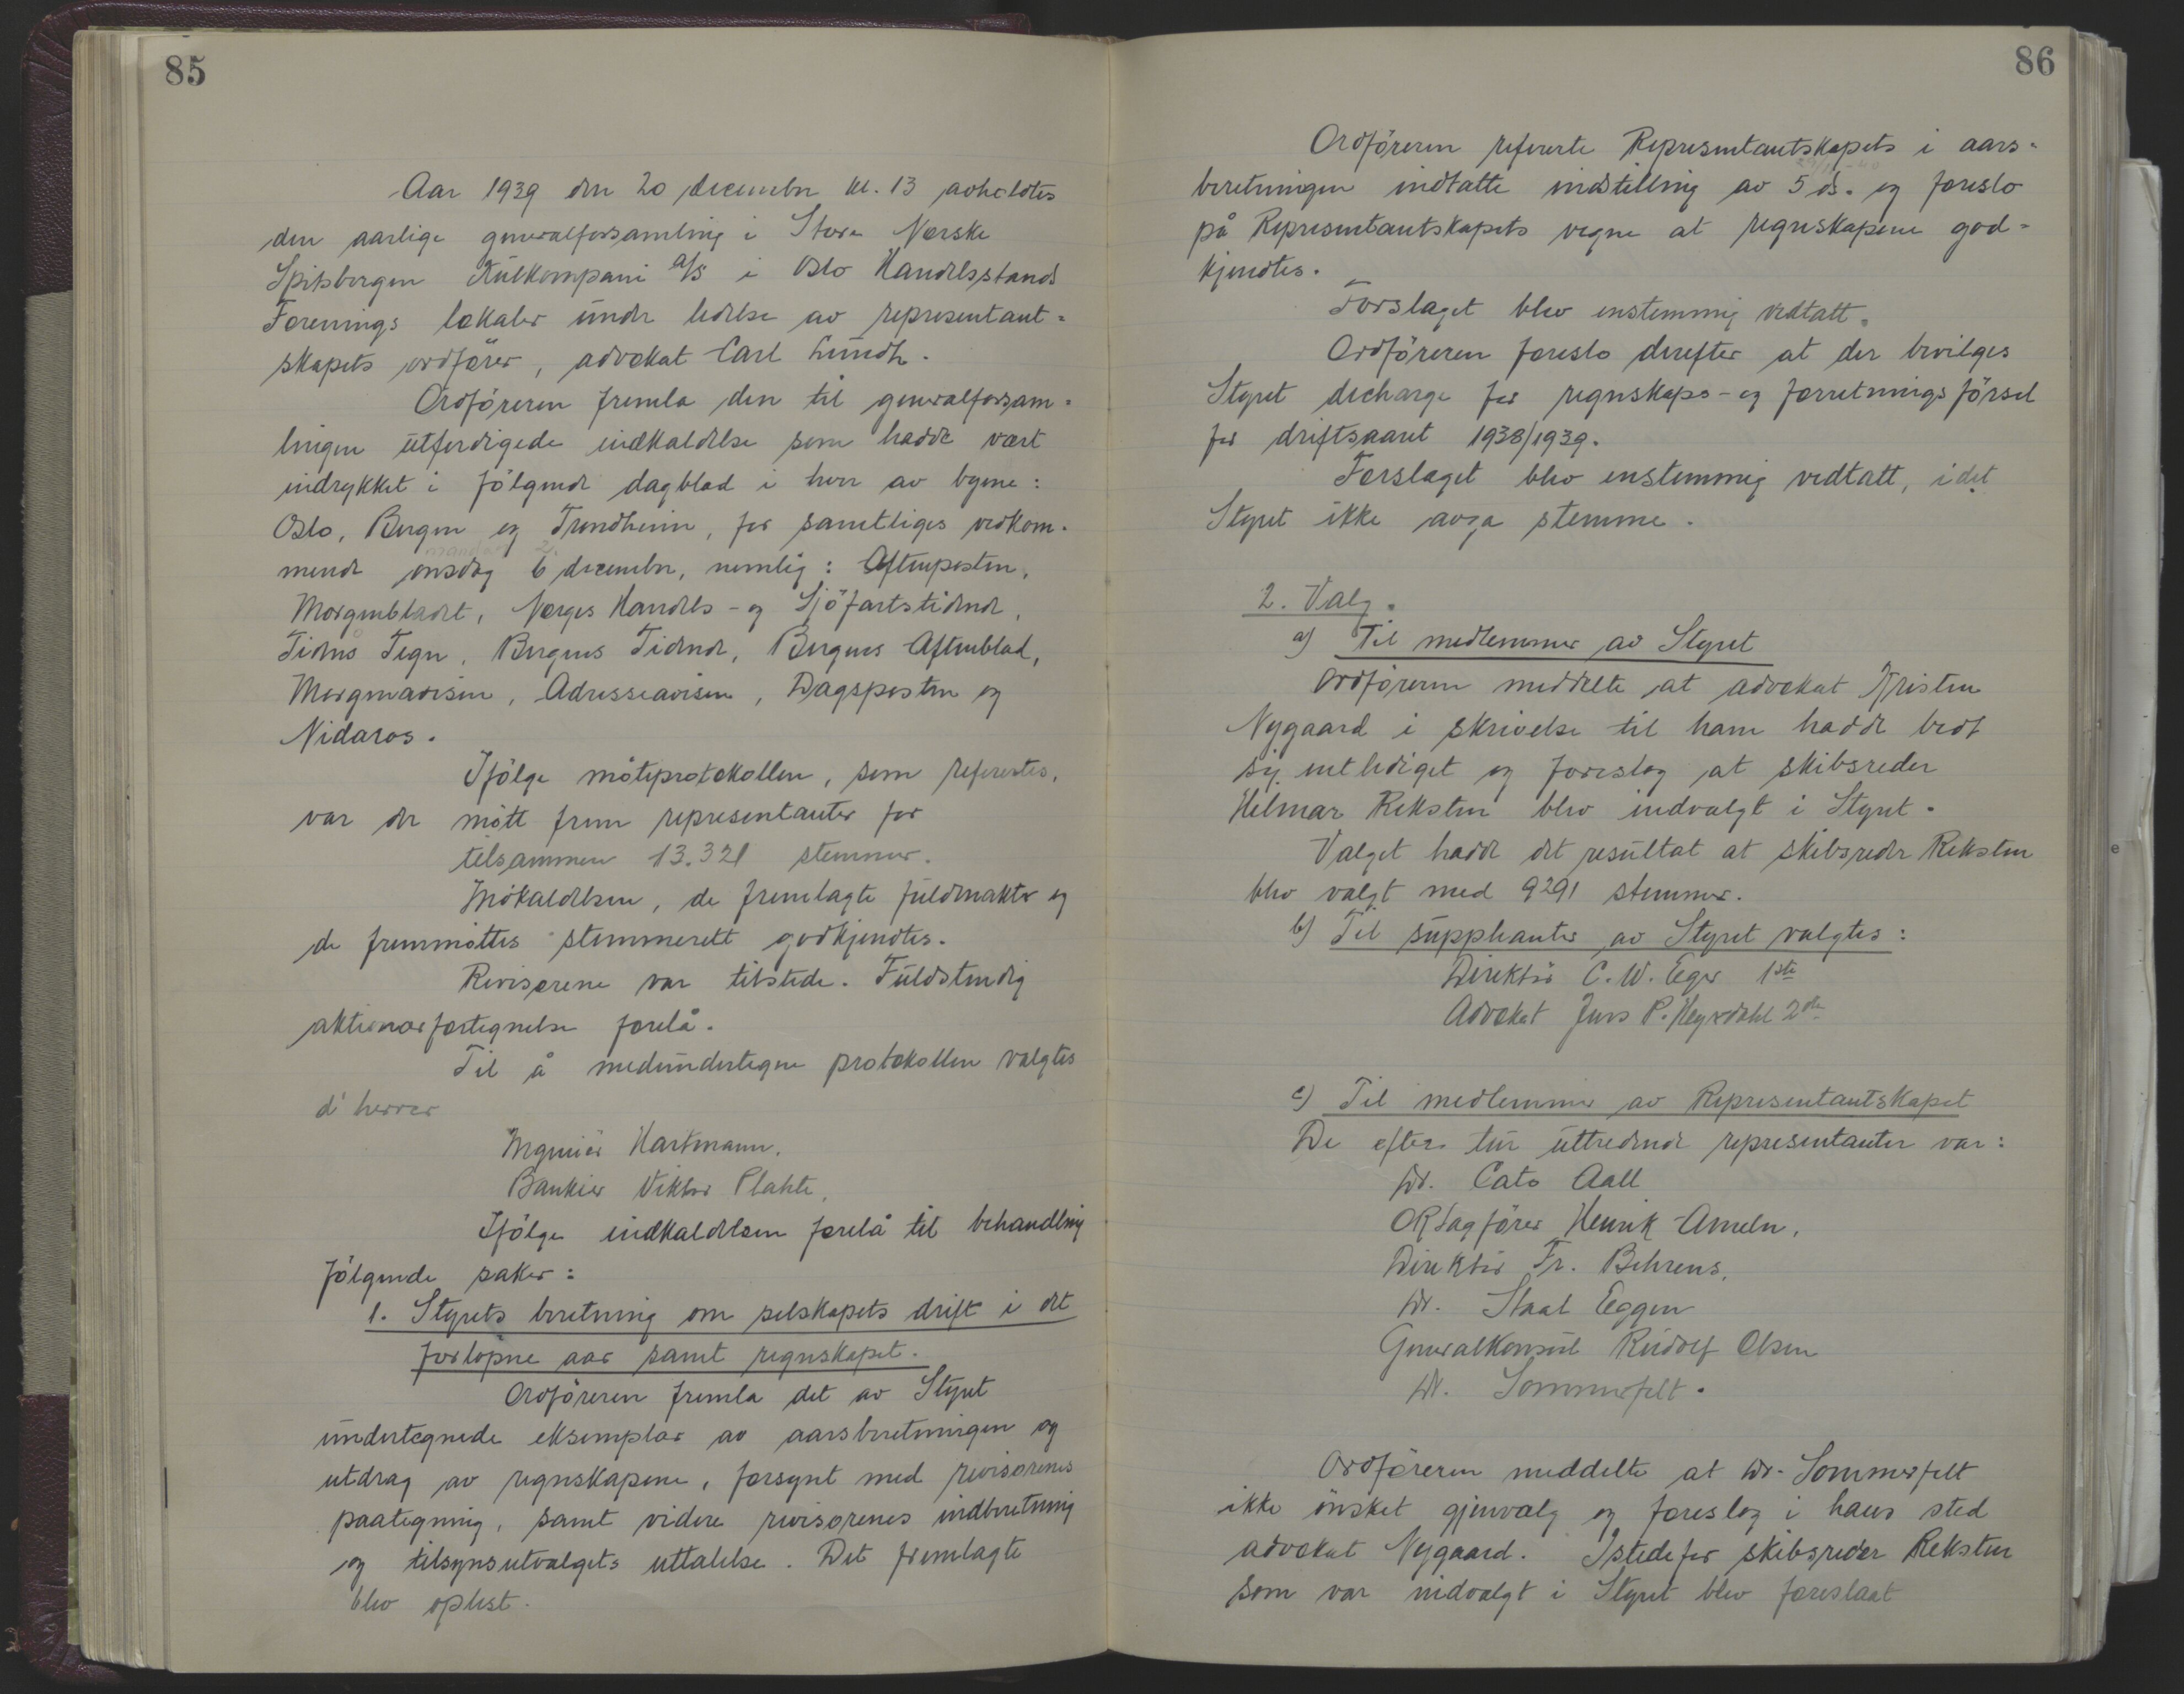 85
Aar 1939 den 20 december kl. 13 avholdtes
den aarlige generalforsamling i Store Norske
Spitsbergen Kulkompani A/S i Oslo Handelsstands
Forenings lokaler under ledelse av representant-
skapets ordfører, advokat Carl Lundh.
Ordføreren fremla den til generalforsam-
lingen utferdigede indkaldelse som hadde vært
indrykket i følgende dagblad i hver av byene:
Oslo, Bergen og Trondheim, for samtliges vedkom-
mende onsdag 6 december, nemlig: Aftenposten,
Morgenbladet, Norges Handels- og Sjöfartstidende,
Tidens Tegn, Bergens Tidende, Bergens Aftenblad,
Morgenavisen, Adresseavisen, Dagsposten og
Nidaros.
Ifølge möteprotokollen, som refertes,
var der mött frem representanter for
tilsammen 13.321 stemmer.
Indkaldelsen, de fremlagte fuldmakter og
de fremmöttes stemmerett godkjendtes.
Revisorene var tilstede. Fuldstendig
aktionærfortegnelse forelå.
Til å medundertegne protokollen valgtes
d'herrer
Ingeniör Hartmann.
Bankier Viktor Plahte,
Ifölge indkaldelsen forelå til behandling
fölgende saker:
1. Styrets beretning om selskapets drift i det
forløpne aar samt regnskapet.
Ordföreren fremla det av Styret
undertegnede eksemplar av aarsberetningen og
utdrag av regnskapene, forsynt med revisorenes
paategning, samt videre revisorenes indberetning
og tilsynsutvalgets uttalelse. Det fremlagte
blev oplest.
86
Ordföreren refererte Representantskapets i aars-
beretningen indtatte indstilling av 5 ds. og foreslo
på Representantskapets vegne at regnskapene god-
kjendtes.
Forslaget blev enstemmig vedtatt.
Ordföreren foreslo derefter at der bevilges
Styret decharge for regnskaps- og forretningsförsel
for driftsaaret 1938/1939.
Forslaget blev enstemmig vedtatt, idet
Styret ikke avga stemme.
2. Valg.
a) Til medlemmer av Styret
Ordföreren meddelte at advokat Kristen
Nygaard i skrivelse til ham hadde bedt
sig entlediget og foreslog at skibsreder
Hilmar Reksten blev indvalgt i Styret.
Valget hadde det resultat at skibsreder Reksten
blev valgt med 9291 stemmer.
b) Til suppleanter av Styret valgtes:
Direktör C. W. Eger 1ste
Advokat Jens P. Heyerdahl 2den
c) Til medlemmer av Representantskapet
De efter tur uttredende representanter var:
Dr. Cato Aall
ORsagförer Henrik Ameln,
Direktör Fr. Behrens,
Dr. Staal Eggen
Generalkonsul Rudolf Olsen
Dr. Sommerfelt.
Ordföreren meddelte at Dr. Sommerfelt
ikke önsket gjenvalg og foreslog i hans sted
advokat Nygaard. Istedefor skibsreder Reksten
som var indvalgt i Styret blev foreslaat